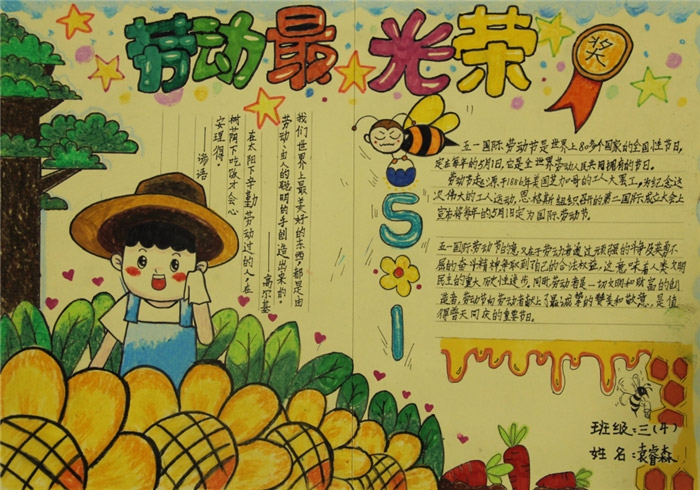 劳动最光荣
奖
我们世界上最美好的东西，都是由
劳动、由人的聪明的手创造出来的。
——高尔基
在太阳下辛勤劳动过的人，在
树荫下吃饭才会心
安理得。
——谚语
5
1
五一国际劳动节是世界上80多个国家的全国性节日，
定在每年的5月1日。它是全世界劳动人民共同拥有的节日。
劳动节起源于1886年美国芝加哥的工人大罢工，为纪念这
次伟大的工人运动，恩格斯组织召开的第二国际成立大会上
宣布将每年的5月1日定为国际劳动节。
五一国际劳动节的意义在于劳动者通过顽强的斗争及英勇不
屈的奋斗精神争取到了自己的合法权益，这意味着人类文明
民主的重大历史性进步，同时劳动者是一切文明和财富的创
造者，劳动节向劳动者献上了最诚挚的赞美和敬意，是值
得普天同庆的重要节日。
班级：三（4）
姓名：袁睿森